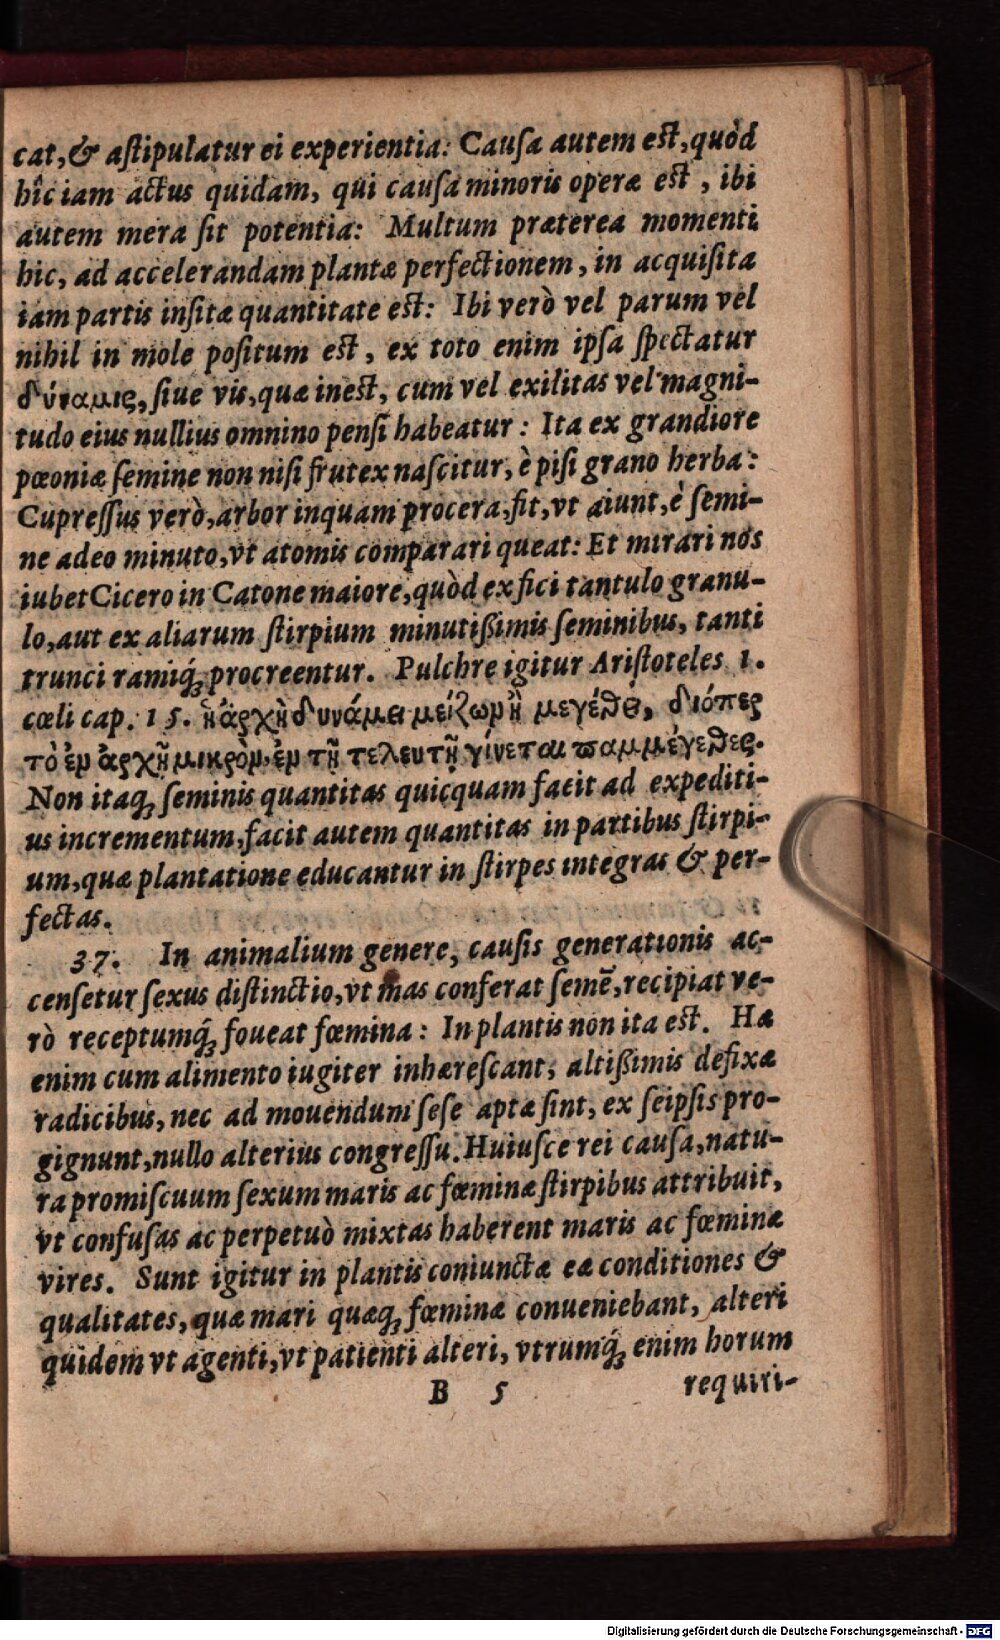 cat,& aſtipulatur ei experientia: Cauſa autem est,quòd
hîc iam actus quidam, qui cauſa minoris operæ est, ibi
autem mera ſit potentia: Multum præterea momenti
hic, ad accelerandam plantæ perfectionem, in acquiſita
iam partis inſitæ quantitate est: Ibi verò vel parum vel
nihil in mole poſitum est, ex toto enim ipſa ſpectatur
δύναμις, ſiue vis,quæ inest, cum vel exilitas vel magni-
tudo eius nullius omnino penſi habeatur: Ita ex grandiore
pœoniæ ſemine non niſi frutex naſcitur, è piſi grano herba:
Cupreſſus verò,arbor inquam procera,fit,vt aiunt,è ſemi-
ne adeo minuto,vt atomis comparari queat: Et mirari nos
iubet Cicero in Catone maiore,quòd ex fici tantulo granu-
lo,aut ex aliarum ſtirpium minutiſsimis ſeminibus, tanti
trunci ramiq́ꝫ procreentur. Pulchre igitur Ariſtoteles 1.
cœli cap. 15. ἡ ἀρχὴ δυνάμει μείζων ἢ μεγέθει, διόπερ
τὸ ἐν ἀρχῇ μικρὸν, ἐν τῇ τελευτῇ γίνεται παμμέγεθες.
Non itaqꝫ ſeminis quantitas quicquam facit ad expediti-
us incrementum,facit autem quantitas in partibus ſtirpi-
um,quæ plantatione educantur in ſtirpes integras & per-
fectas.
37. In animalium genere, cauſis generationis ac-
cenſetur ſexus diſtinctio,vt mas conferat ſemē,recipiat ve-
rò receptumq́ꝫ foueat fœmina: In plantis non ita est. Hæ
enim cum alimento iugiter inhæreſcant, altiſsimis defixæ
radicibus, nec ad mouendum ſeſe aptæ ſint, ex ſeipſis pro-
gignunt,nullo alterius congreſſu. Huiuſce rei cauſa,natu-
ra promiſcuum ſexum maris ac fœminæ ſtirpibus attribuit,
vt confuſas ac perpetuò mixtas haberent maris ac fœminæ
vires. Sunt igitur in plantis coniunctæ eæ conditiones &
qualitates, quæ mari quæqꝫ fœminæ conueniebant, alteri
quidem vt agenti,vt patienti alteri, vtrumq́ꝫ enim horum
B 5 requiri-
Digitalisierung gefördert durch die Deutsche Forschungsgemeinschaft - DFG